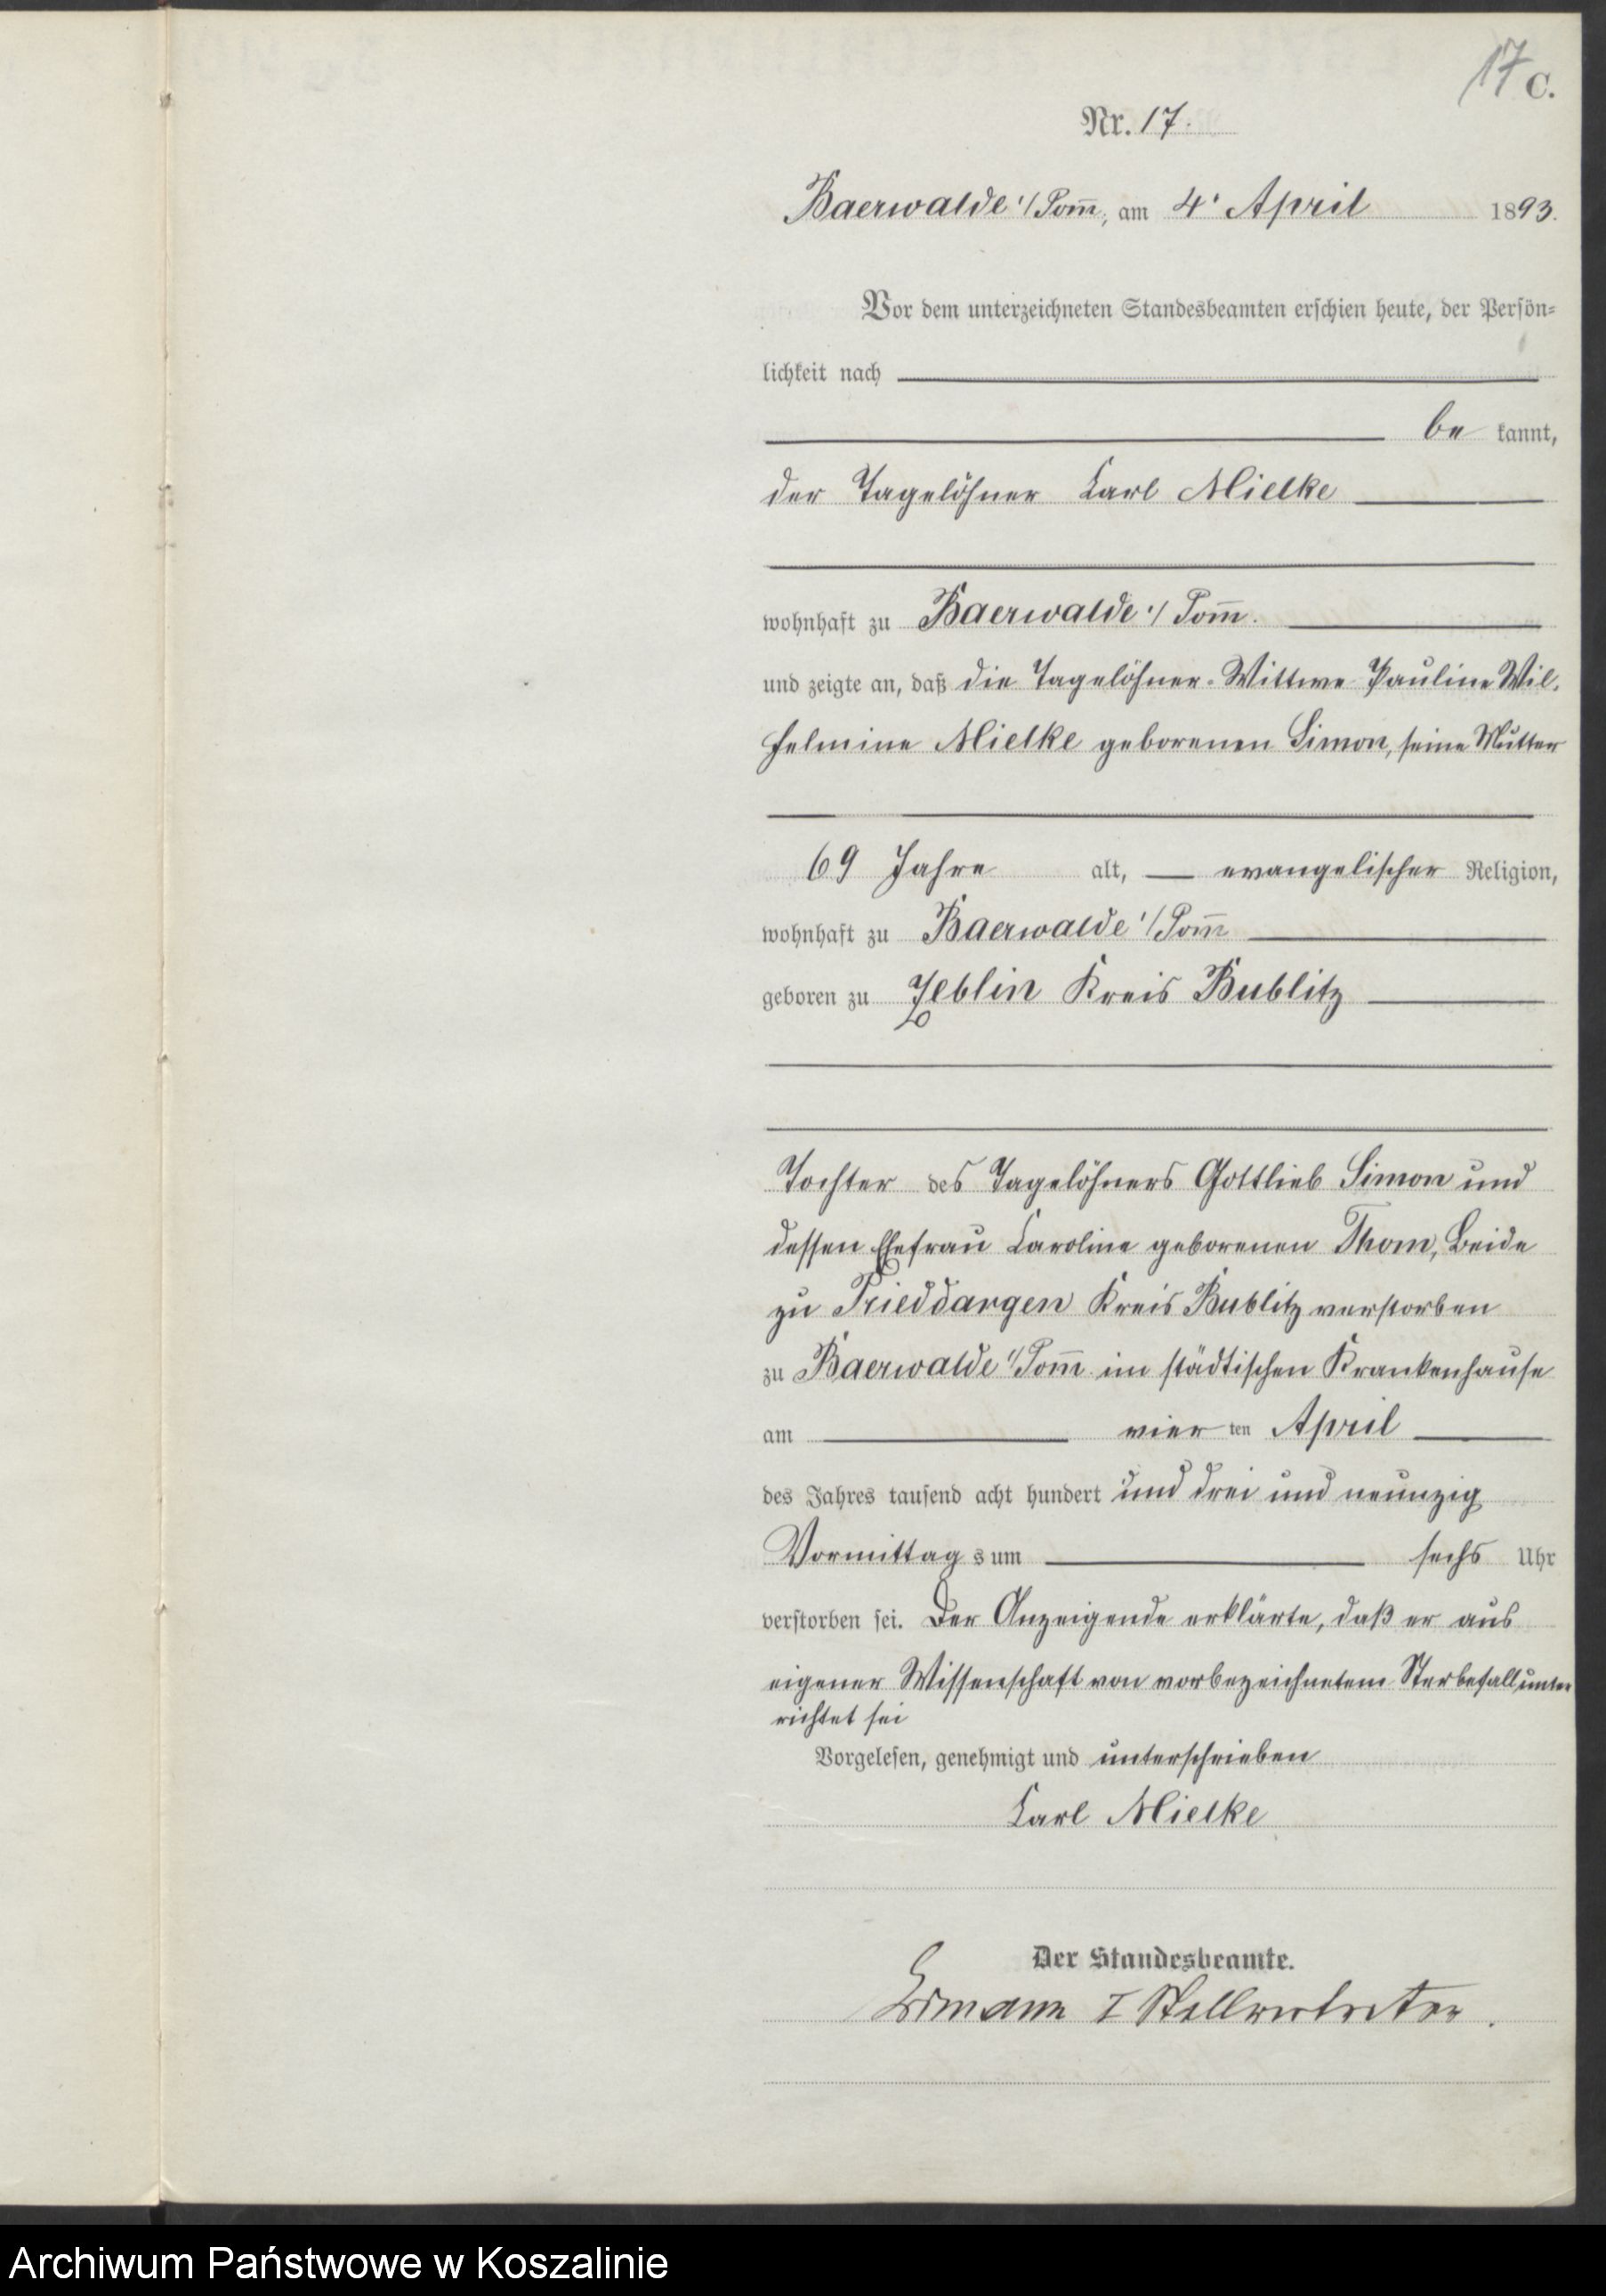 17
C.
Nr. 17.
Baerwalde i/Pom̅, am 4. April 1893.
Vor dem unterzeichneten Standesbeamten erschien heute, der Persön-
lichkeit nach
be kannt,
der Tagelöhner Carl Mielke
wohnhaft zu Baerwalde i/ Pom̅.
und zeigte an, daß die Tagelöhner-Wittwe Pauline Wil-
helmine Mielke geborenen Simon, seine Mutter
69 Jahre alt, evangelischer Religion,
wohnhaft zu Baerwalde i/Pom̅
geboren zu Zeblin Kreis Bublitz
Tochter des Tagelöhners Gottlieb Simon und
dessen Ehefrau Caroline geborenen Thom, Beide
zu Prieddargen Kreis Bublitz verstorben
zu Baerwalde i/Pom̅ im städtischen Krankenhause
am vier ten April
des Jahres tausend acht hundert und drei und neunzig
Vormittag s um sechs Uhr
verstorben sei. Der Anzeigende erklärte, daß er aus
eigener Wissenschaft von vorbezeichnetem Sterbefall unter
richtet sei
Vorgelesen, genehmigt und unterschrieben
Carl Mielke
Der Standesbeamte.
I Stellvertreter.
Archiwum Państwowe w Koszalinie